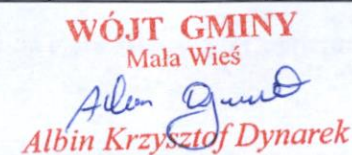 WÓJT GMINY
Mała Wieś
Albin Krzysztof Dynarek